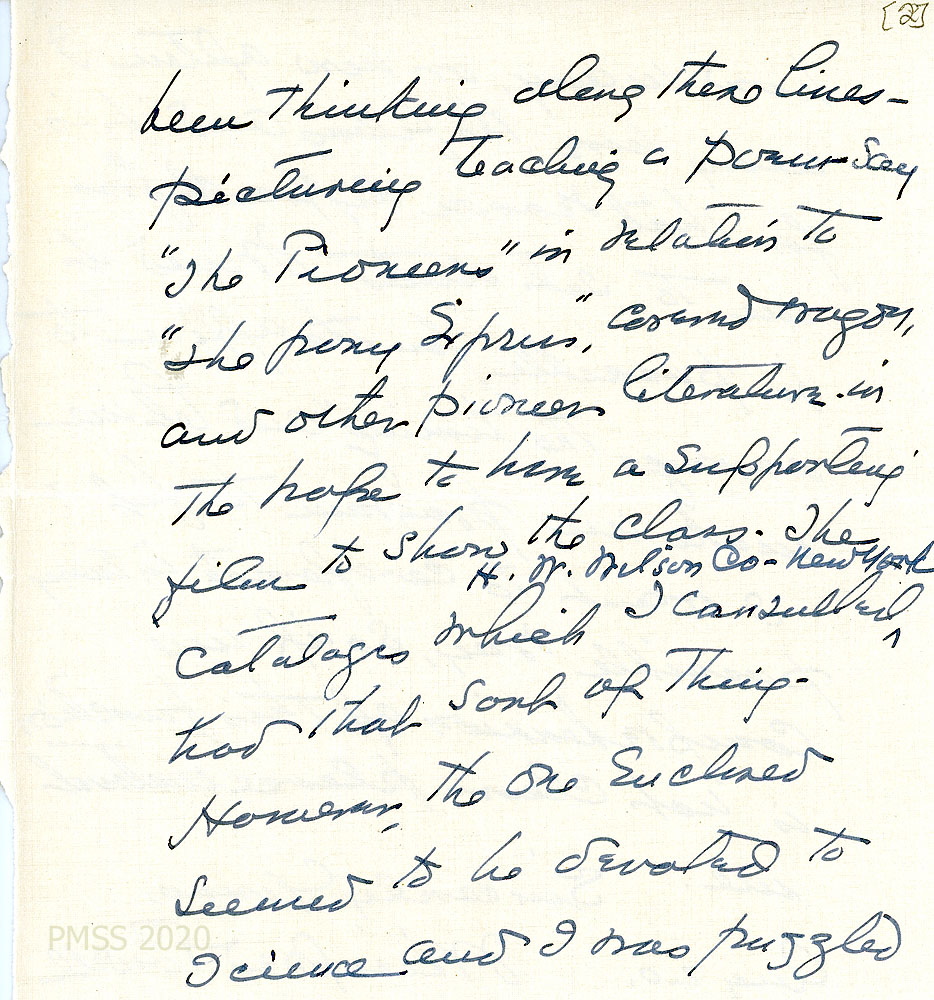 [2]
been thinking along these lines -
picturing teaching a poem - say
"The Pioneers" in relation to
"The pony Express", covered wagon,
and other pioneer literature in
the hope to have a supporting
film to show the class. The
H. W. Wilson Co - New York
catalogs which I consulted ^
had that sort of thing.
However, the one enclosed
seemed to be devoted to
Science and I was puzzled
PMSS 2020